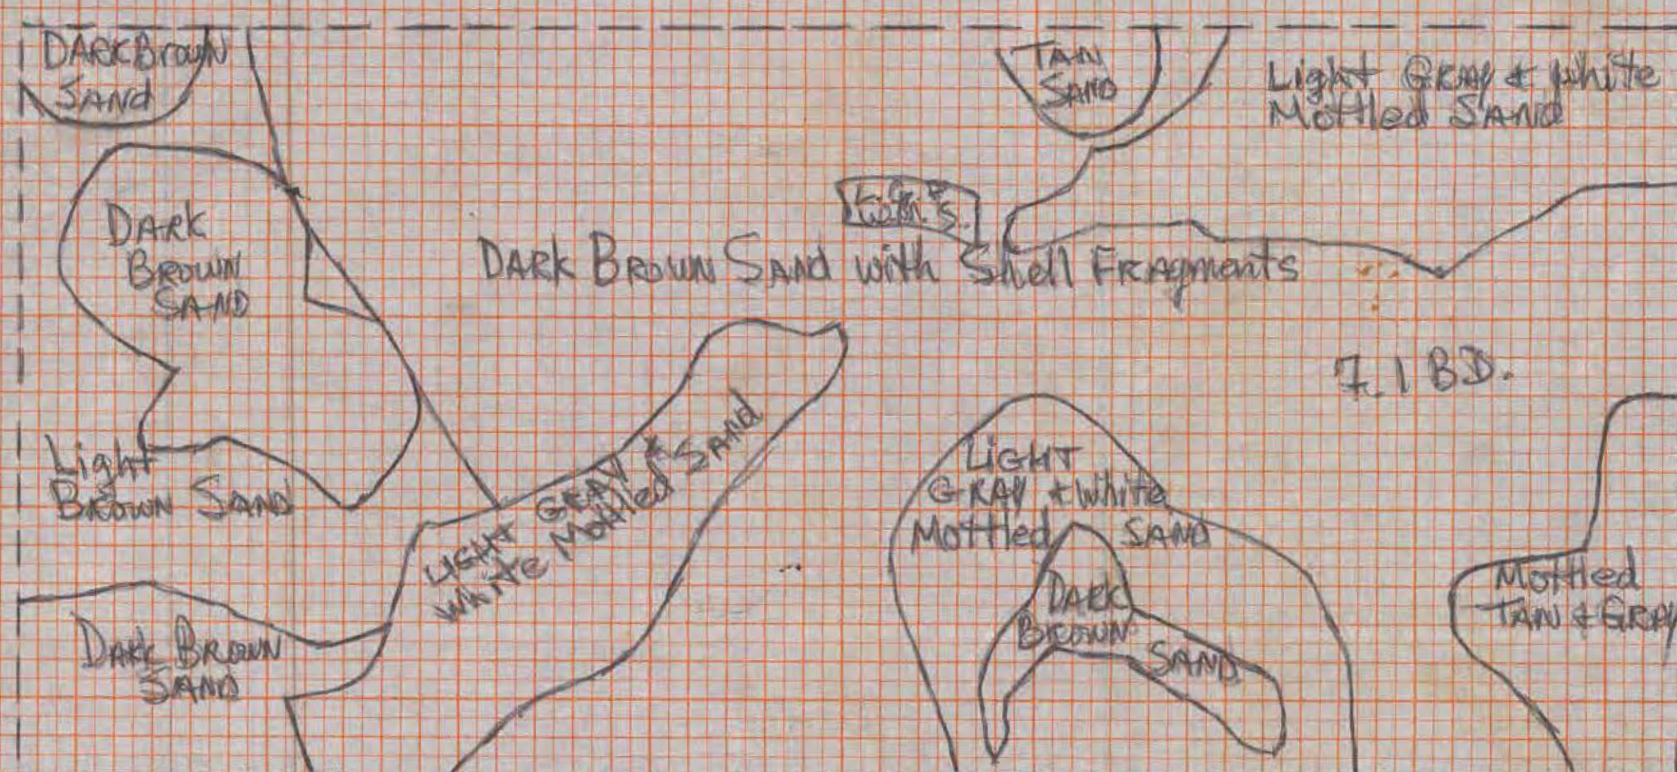 DARK Brown
SAND
TAN
SAND
Light GRAY & White
Mottled SAND
DARK
BROWN
SAND
DARK BROWN SAND with Shell FRAgments
7.1 BD.
Light
BROWN SAND
LIGHT GRAY &
White Mottled SAND
LIGHT
GRAY & White
Mottled SAND
DARK
BROWN
SAND
Mottled
TAN & GRAY
DARK BROWN
SAND